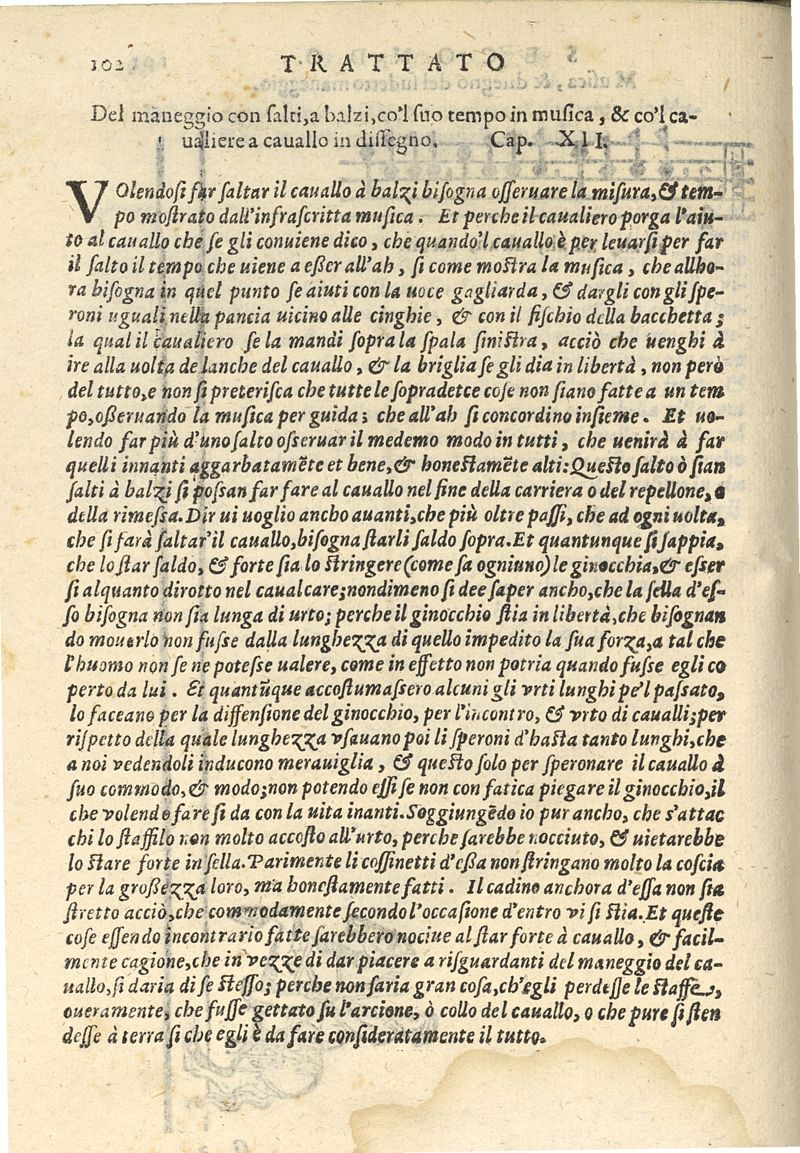 102
TRATTATO
Del maneggio con ſalti, a balzi, co'l ſuo tempo in muſica, & co'l ca-
ualiere a cauallo in diſſegno. Cap. XII.
VOlendoſi far ſaltar il cauallo à balzi biſogna oſſeruare la miſura, & tem-
po moſtrato dall'infraſcritta muſica. Et perche il caualiero porga l'aiu-
to al cauallo che ſe gli conuiene dico, che quando'l cauallo è per leuarſi per far
il ſalto il tempo che uiene a eßer all'ah, ſi come moſtra la muſica, che allho-
ra biſogna in quel punto ſe aiuti con la uoce gagliarda, & dargli con gli ſpe-
roni uguali nella pancia uicino alle cinghie, & con il fiſchio della bacchetta;
la qual il caualiero ſe la mandi ſopra la ſpala ſiniſtra, acciò che uenghi à
ire alla uolta de lanche del cauallo, & la briglia ſe gli dia in libertà, non però
del tutto, e non ſi preteriſca che tutte le ſopradetce coſe non ſiano fatte a un tem
po, oßeruando la muſica per guida; che all'ah ſi concordino inſieme. Et uo-
lendo far più d'uno ſalto oſſeruar il medemo modo in tutti, che uenirà à far
quelli innanti aggarbatamẽte et bene, & honeſtamẽte alti: Queſto ſalto ò ſian
ſalti à balzi ſi poſſan far fare al cauallo nel fine della carriera o del repellone, o
della rimeſſa. Dir ui uoglio ancho auanti, che più oltre paſſi, che ad ogni uolta,
che ſi farà ſaltar'il cauallo, biſogna ſtarli ſaldo ſopra. Et quantunque ſi ſappia,
che lo ſtar ſaldo, & forte ſia lo ſtringere (come ſa ogniuno) le ginocchia, & eſſer
ſi alquanto dirotto nel caualcare; nondimeno ſi dee ſaper ancho, che la ſella d'eſ-
ſo biſogna non ſia lunga di urto; perche il ginocchio ſtia in libertà, che biſognan
do mouerlo non fuſſe dalla lunghezza di quello impedito la ſua forza, a tal che
l'huomo non ſe ne poteſſe ualere, come in effetto non potria quando fuſſe egli co
perto da lui. Et quantũque accoſtumaſſero alcuni gli vrti lunghi pe'l paſſato,
lo faceano per la diffenſione del ginocchio, per l'incontro, & vrto di caualli; per
riſpetto della quale lunghezza vſauano poi li ſperoni d'haſta tanto lunghi, che
a noi vedendoli inducono merauiglia, & queſto ſolo per ſperonare il cauallo à
ſuo commodo, & modo; non potendo eſſi ſe non con fatica piegare il ginocchio, il
che volendo fare ſi da con la uita inanti. Soggiungẽdo io pur ancho, che s'attac
chi lo ſtaffilo non molto accoſto all'urto, perche ſarebbe nocciuto, & uietarebbe
lo ſtare forte in ſella. Parimente li coſſinetti d'eßa non ſtringano molto la coſcia
per la großezza loro, ma honeſtamente fatti. Il cadino anchora d'eſſa non ſia
ſtretto acciò, che commodamente ſecondo l'occaſione d'entro vi ſi ſtia. Et queſte
coſe eſſendo incontrario fatte ſarebbero nociue al ſtar forte à cauallo, & facil-
mente cagione, che in vezze di dar piacere a riſguardanti del maneggio del ca-
uallo, ſi daria di ſe ſteſſo; perche non ſaria gran coſa, ch'egli perdeſſe le ſtaffe,
oueramente, che fuſſe gettato ſu l'arcione, ò collo del cauallo, o che pure ſi ſten
deſſe à terra ſi che egli è da fare conſideratamente il tutto.